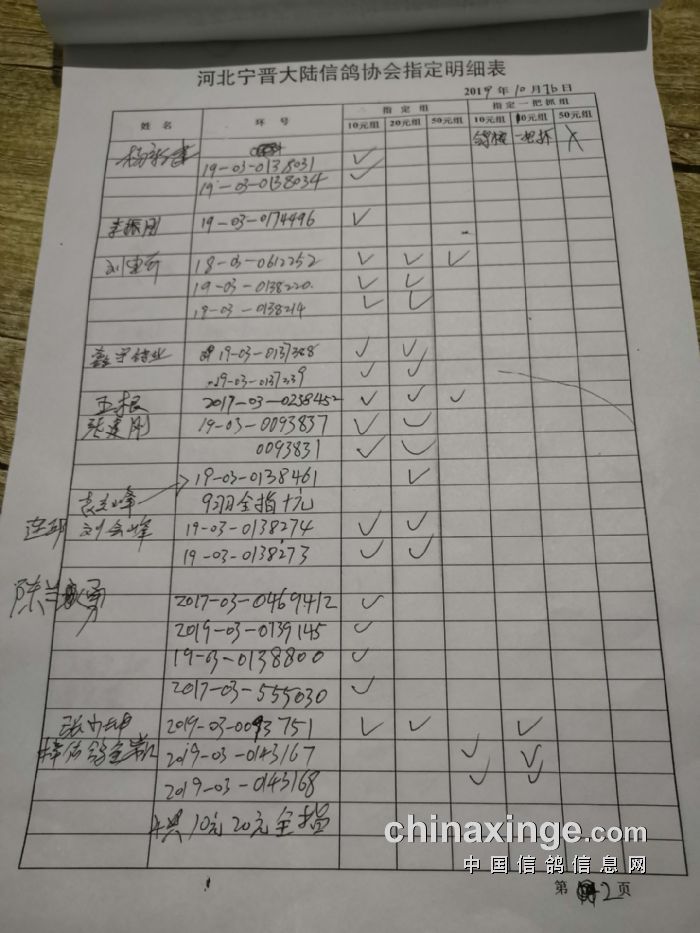 河北宁晋大陆信鸽协会指定明细表
2019 年 10 月 26 日
姓 名 环 号 二 指 定 组 指 定 一 把 抓 组
10元组 20元组 50元组 10元组 10元组 50元组
19-03-0138031 ✓
19-03-0138034 ✓
李振刚 19-03-0174496 ✓
18-03-0612252 ✓ ✓ ✓
19-03-0138220 ✓ ✓
19-03-0138214 ✓ ✓
19-03-0137388 ✓ ✓
19-03-0137239 ✓ ✓
王根 2017-03-0238452 ✓ ✓ ✓
张建刚 19-03-0093837 ✓ ✓
0093831 ✓ ✓
19-03-0138461 ✓
袁立峰 9羽全指十元
刘会峰 19-03-0138274 ✓ ✓
19-03-0138273 ✓ ✓
2017-03-0469412 ✓
2019-03-0139145 ✓
19-03-0138800 ✓
2017-03-555030 ✓
2019-03-0093751 ✓ ✓ ✓
2019-03-0143167 ✓ ✓
2019-03-0143168 ✓ ✓
共10元20元全指
chinaxinge.com
中国信鸽信息网
第 2 页